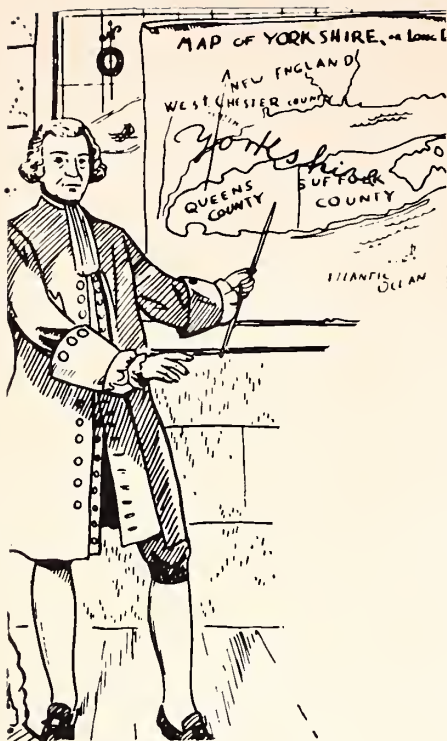 MAP OF YORKSHIRE, OR LONG
NEW ENGLAND
WESTCHESTER COUNTY
Yorkshire
QUEENS
COUNTY
SUFFOLK
COUNTY
ATLANTIC
OCEAN